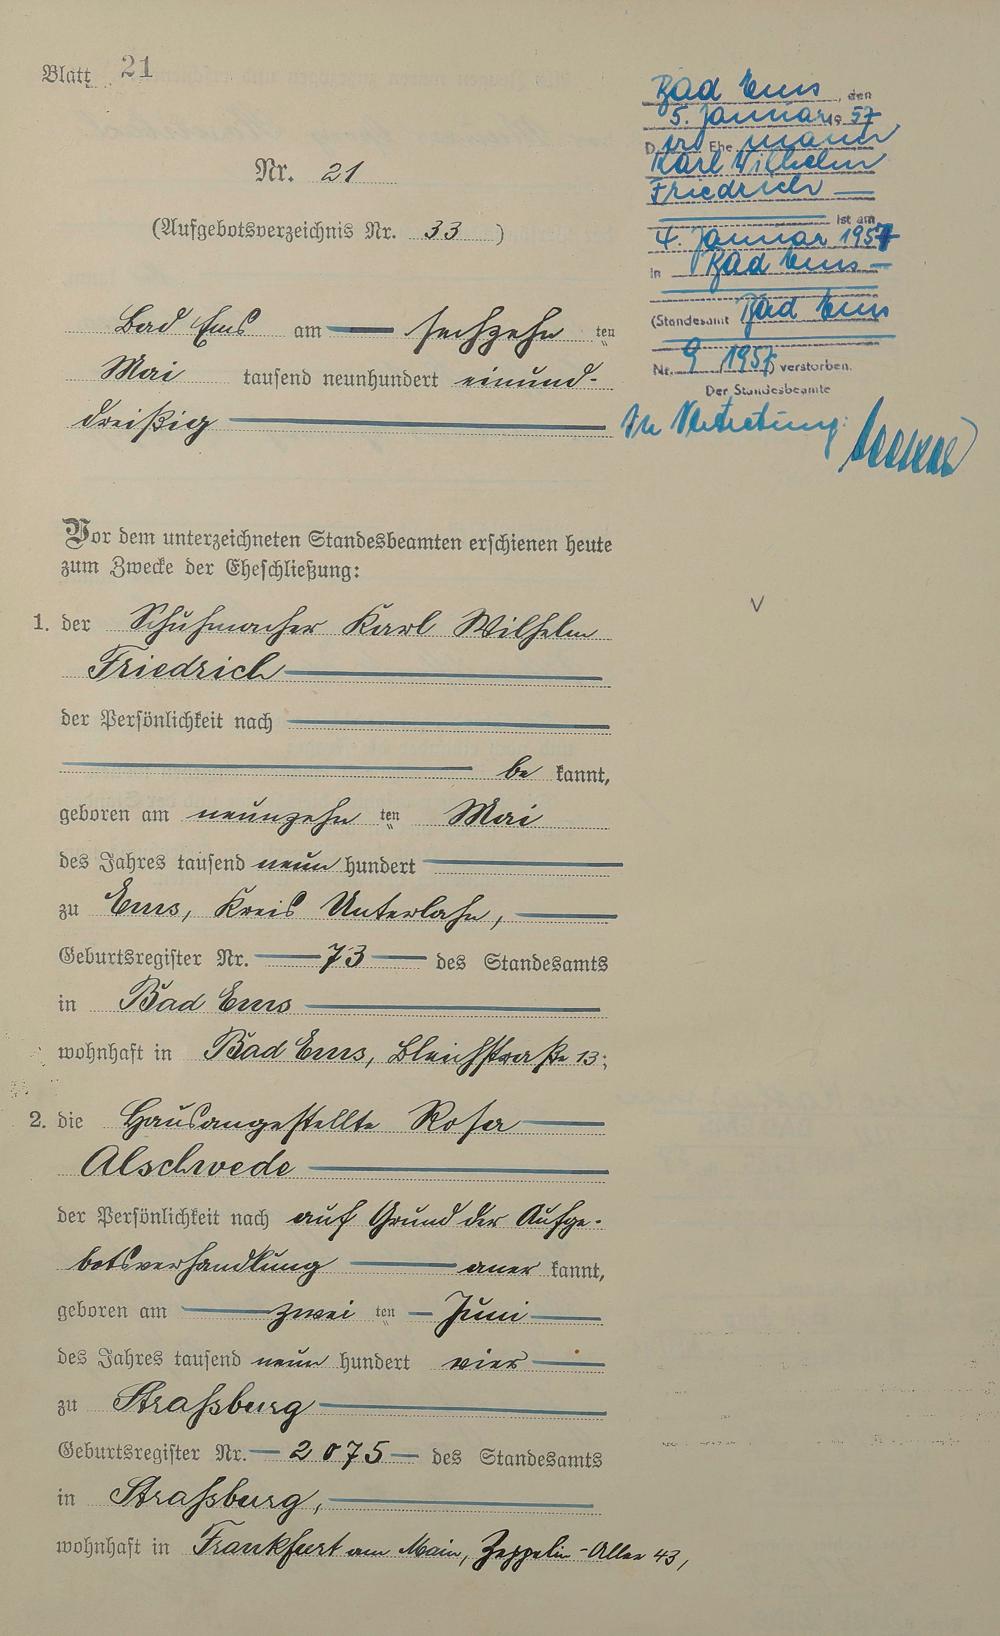 Blatt 21
Nr. 21
(Aufgebotsverzeichnis Nr. 33)
Bad Ems am sechzehn ten
Mai tausend neunhundert einund-
dreißig
Vor dem unterzeichneten Standesbeamten erschienen heute
zum Zwecke der Eheschließung:
1. der Schuhmacher Karl Wilhelm
Friedrich
der Persönlichkeit nach
be kannt,
geboren am neunzehn ten Mai
des Jahres tausend neun hundert
zu Ems, Kreis Unterlahn,
Geburtsregister Nr. 73 des Standesamts
in Bad Ems
wohnhaft in Bad Ems, Bleichstraße 13;
2. die Hausangestellte Rosa
Alschwede
der Persönlichkeit nach auf Grund der Aufge-
botsverhandlung aner kannt,
geboren am zwei ten Juni
des Jahres tausend neun hundert vier
zu Straßburg
Geburtsregister Nr. 2075 des Standesamts
in Straßburg,
wohnhaft in Frankfurt am Main, Zeppelin-Allee 43,
Bad Ems, den
5. Januar 19 57
D er Ehe mann
Karl Wilhelm
Friedrich
ist am
4. Januar 1957
in Bad Ems
(Standesamt Bad Ems
Nr. 9 1957) verstorben.
Der Standesbeamte
In Vertretung: